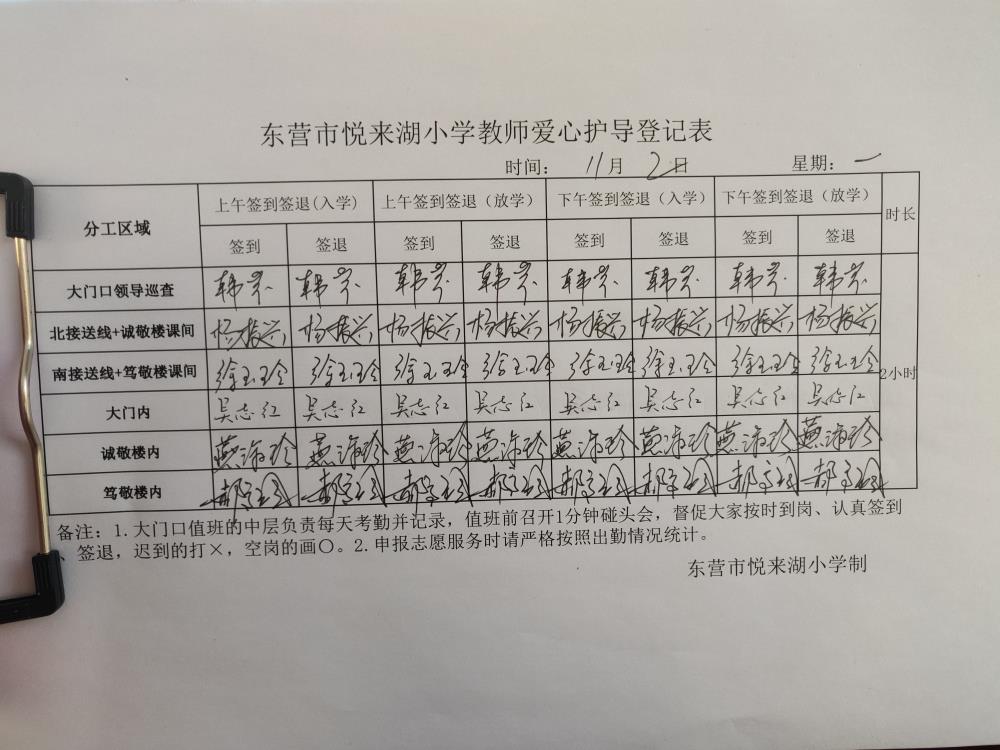 东营市悦来湖小学教师爱心护导登记表
时间： 11月 2日 星期： 一
分工区域 上午签到签退(入学) 上午签到签退（放学） 下午签到签退（入学） 下午签到签退（放学） 时长
签到 签退 签到 签退 签到 签退 签到 签退
大门口领导巡查 韩 韩 韩 韩 韩 韩 韩 韩
北接送线+诚敬楼课间 杨振兴 杨振兴 杨振兴 杨振兴 杨振兴 杨振兴 杨振兴 杨振兴
南接送线+笃敬楼课间 徐玉玲 徐玉玲 徐玉玲 徐玉玲 徐玉玲 徐玉玲 徐玉玲 徐玉玲 2小时
大门内 吴志红 吴志红 吴志红 吴志红 吴志红 吴志红 吴志红 吴志红
诚敬楼内 燕 燕 燕 燕 燕 燕 燕 燕
笃敬楼内 郝 郝 郝 郝 郝 郝 郝 郝
备注：1.大门口值班的中层负责每天考勤并记录，值班前召开1分钟碰头会，督促大家按时到岗、认真签到
、签退，迟到的打×，空岗的画〇。2.申报志愿服务时请严格按照出勤情况统计。
东营市悦来湖小学制